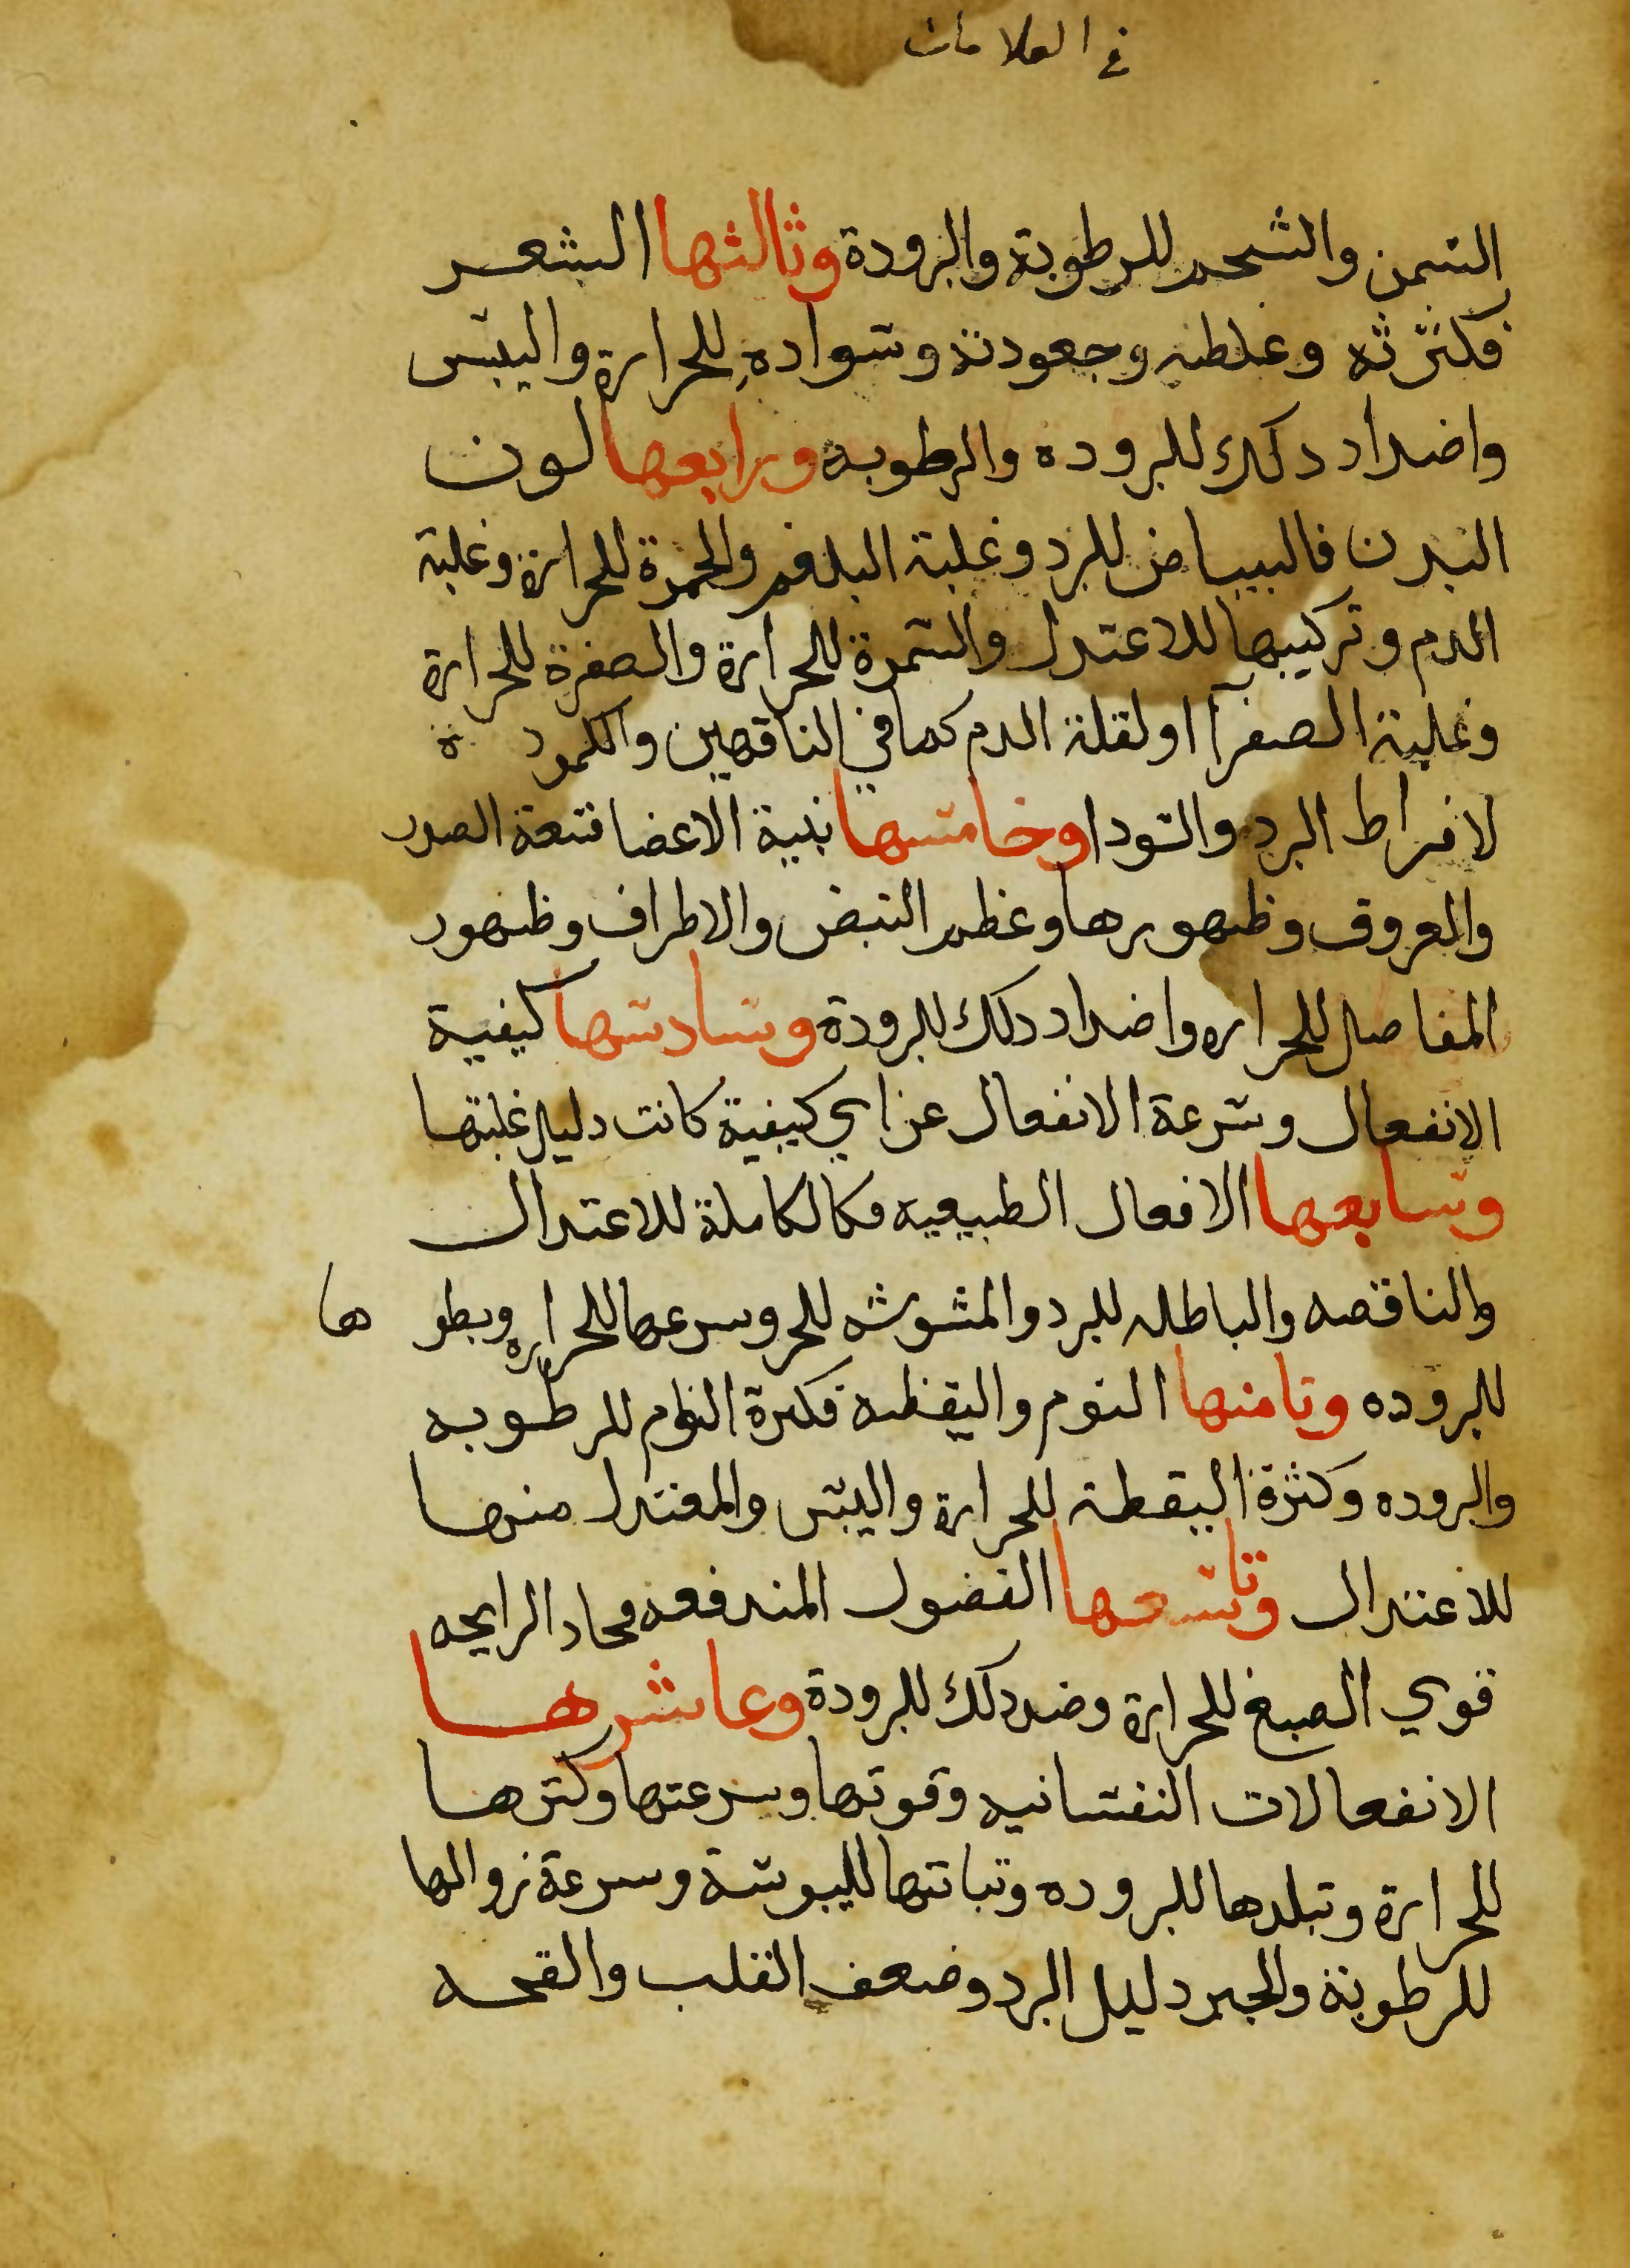 في العلامات
السمن والشحم للرطوبة والبرودة وثالثها الشعر
فكثرته وغلظه وجعودته وسواده للحرارة واليبس
واضداد دلك للبروده والرطوبه ورابعها لون
البدن فالبياض للبرد وغلبة البلغم والحمرة للحرارة وغلبة
الدم وتركيبها للاعتدل والسمرة للحرارة والصفرة للحرارة
وغلبة الصفرآ او لقلة الدم كما في الناقهين والكمودة
لافراط البرد والسودا وخامسها بنية الاعضا فسعة الصدر
والعروق وظهورها وعظم النبض والاطراف وظهور
المفاصل للحراره واضداد دلك للبرودة وسادسها كيفية
الانفعال وسرعة الانفعال عن اي كيفية كانت دليل غلبتها
وسابعها الافعال الطبيعيه فكالكاملة للاعتدال
والناقصه والباطله للبرد والمشوشه للحر وسرعها للحراره وبطوها
للبروده وثامنها النوم واليقظه فكثرة النوم للرطوبه
والبروده وكثرة اليقظة للحرارة واليبس والمعتدل منها
للاعتدال وتاسعها الفضول المندفعه فحاد الرايحه
قوي الصبغ للحرارة وضد دلك للبرودة وعاشرها
الانفعالات النفسانيه وقوتها وسرعتها وكثرها
للحرارة وتبلدها للبروده وثباتها لليبوسة وسرعة زوالها
للرطوبة والجبن دليل البرد وضعف القلب والقحه